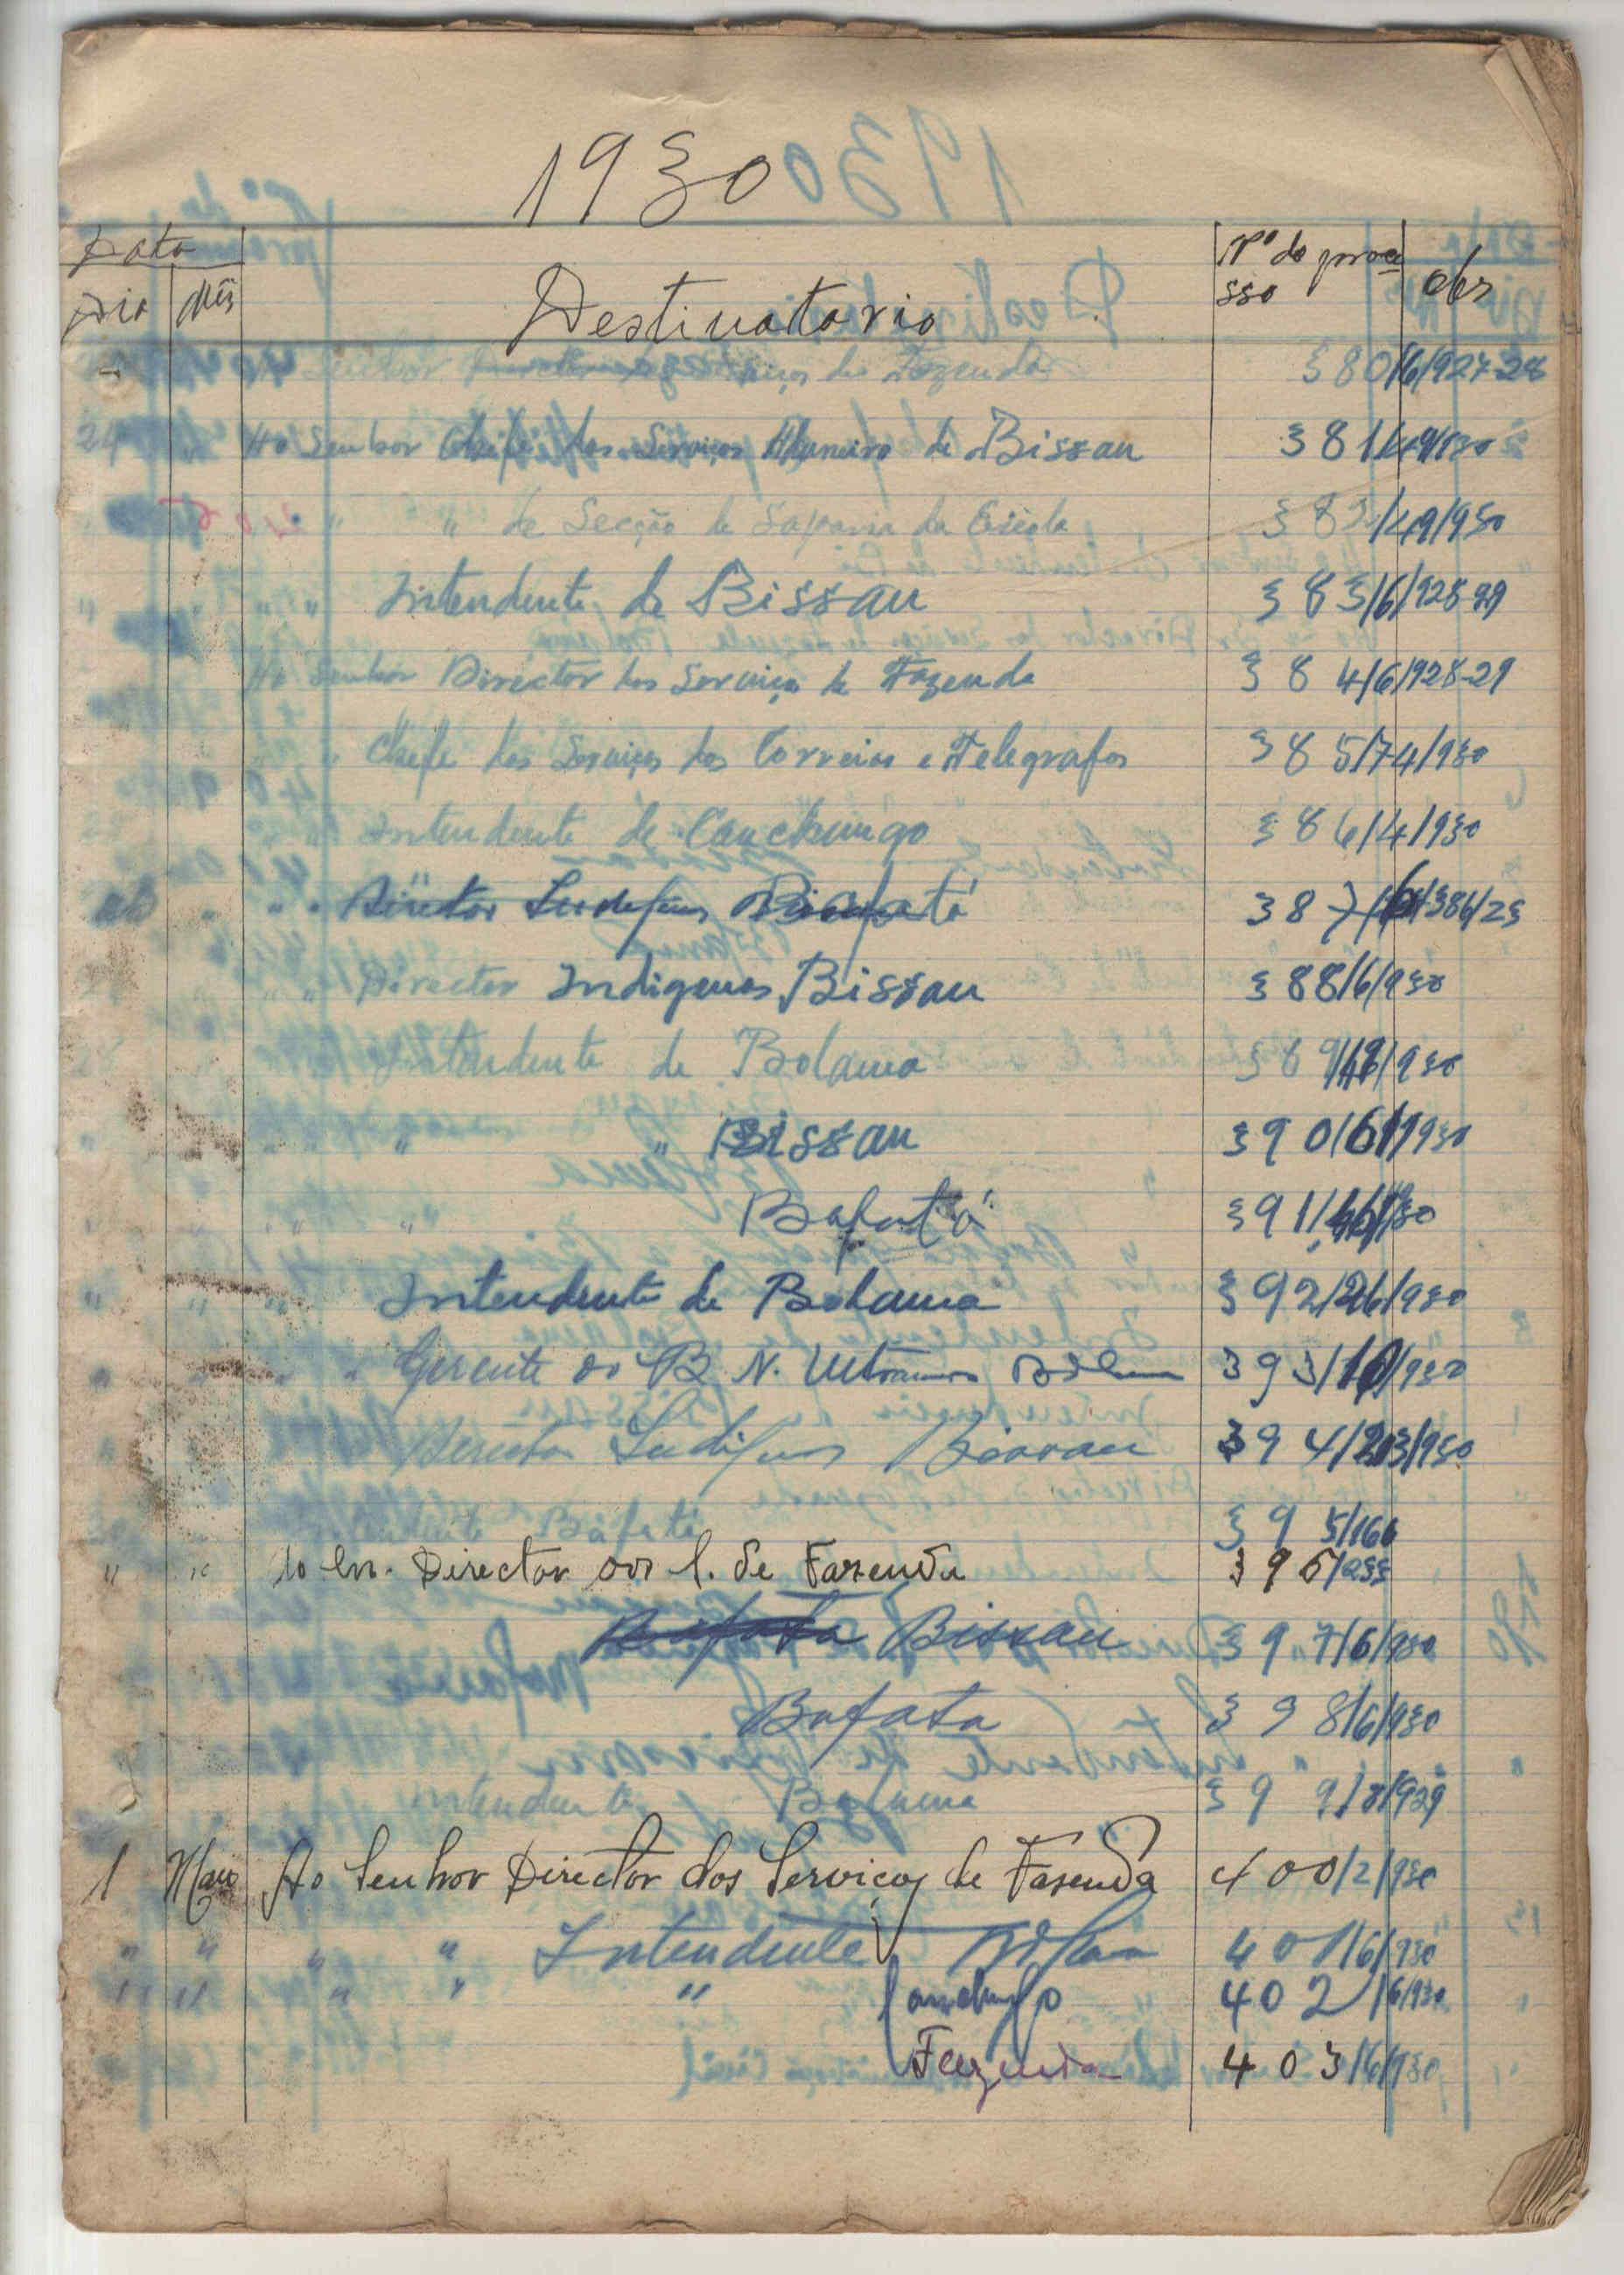 1930
Data
Dia Mês Destinatario Nº do proce
sso obs
Senhor dos Serviços de Fazenda 380/6/927-28
24 " Ao Senhor Chefe dos Serviços Aduaneiro de Bissau 381/49/930
" " de Secção de da Escola 382/49/930
" " " Intendente de Bissau 383/6/928-29
Ao Senhor Director dos Serviços de Fazenda 384/6/928-29
" Chefe dos Serviços dos Correios e Telegrafos 385/74/930
" " Intendente de Canchungo 386/4/930
26 " " " Director Bafatá 387
" " Director Indigenas Bissau 388/6/930
28 Intendente de Bolama 389/ /930
" " " " " Bissau 390/6/1930
" " " " Bafatá 391/ /930
" " " Intendente de Bolama 392/26/930
" " " " Gerente do B. N. Ultramarino 393/ /930
" Director Indigenas Bissau 394/ /930
30 Intendente Bafatá 395/166
" " Ao Director dos S. de Fazenda 396/255
Bafata Bissau 397/6/930
Bafata 398/6/930
Intendente Bolama 399/8/929
1 Maio Ao Senhor Director dos Serviços de Fasenda 400/2/930
" " " " Intendente 401/6/930
" " " " " Canchungo 402/6/930
Fazenda 403/6/930